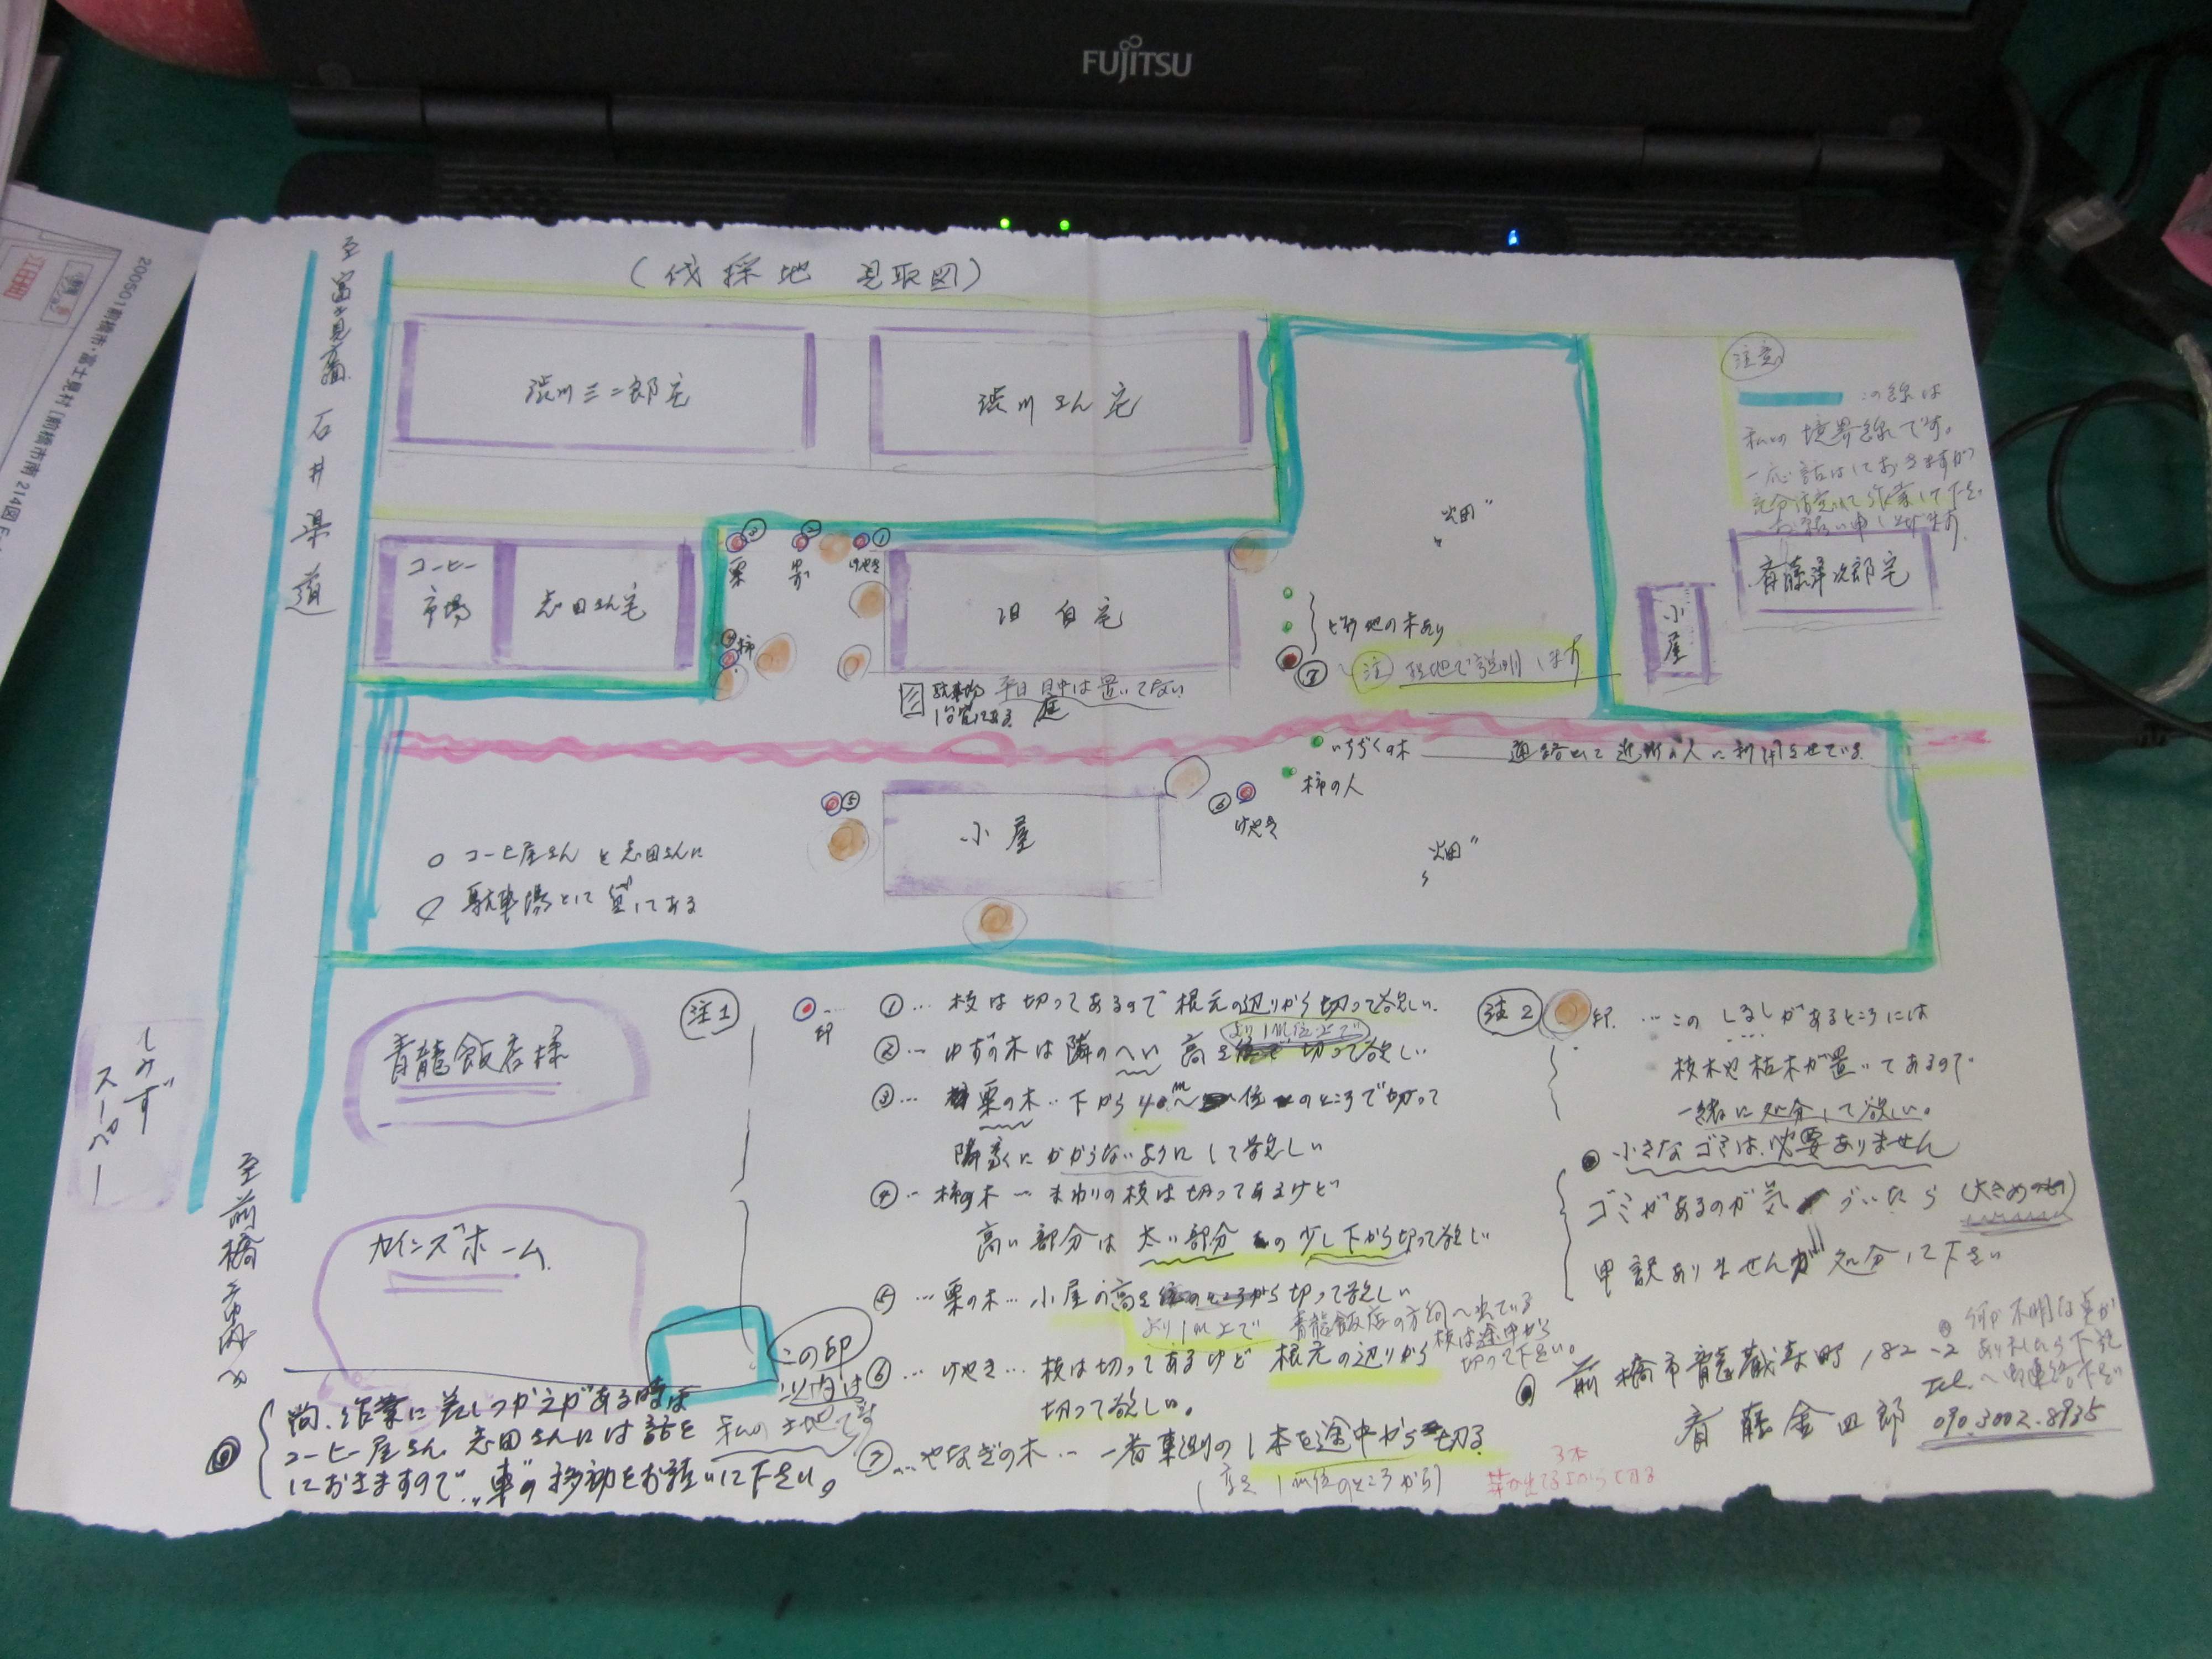 FUJITSU
200501前橋市・富士見村(前橋市南 214図
(伐採地 見取図)
石井県道
渋川三二郎宅
渋川さん宅
注意
この線は
私の境界線です。
一応話はしておきますが
充分注意して作業して下さい
お願い申し上げます
斉藤澤次郎宅
小屋
コーヒー
市場
志田さん宅
③
栗
②
①
けやき
④
柿
旧自宅
畑
境地の木あり
⑦
注 現地で説明します
駐車場 平日日中は置いてない
庭
いちぢくの木
通路として近所の人に利用させている
柿の人
⑤
小屋
⑥
けやき
畑
コーヒ屋さんと志田さんに
駐車場として貸してある
しみず
スーパー
青龍飯店様
カインズホーム
注1
印
①…枝は切ってあるので根元の辺りから切って欲しい。
②…ゆずの木は隣のへい高さ
より1m位上で
切って欲しい
③…栗の木…下から
位のところで切って
隣家にかからないようにして欲しい
④…柿の木…まわりの枝は切ってあるけど
高い部分は太い部分の少し下から切って欲しい
⑤…栗の木…小屋の高さ
から切って欲しい
より1m上で
青龍飯店の方向へ出ている
枝は途中から
切って下さい。
⑥…けやき…枝は切ってあるけど根元の辺りから
切って欲しい。
⑦…やなぎの木…一番東側の1本を途中から切る
(高さ1m位のところから)
3本
芽が出てるからって切る
注2
印…このしるしがあるところには
枝木や枯木が置いてあるので
一緒に処分して欲しい。
小さなゴミは必要ありません
ゴミがあるのが気づいたら(大きめのもの)
申訳ありませんが処分して下さい
何か不明な点が
ありましたら下記
Tel.へ御連絡下さい
前橋市龍蔵寺町182-2
斉藤金四郎 090.3002.8935
この印
以内は
私の土地です
至前橋市内へ
尚、作業に差しつかえがある時は
コーヒー屋さん、志田さんには話を
しておきますので、車の移動をお願いして下さい。